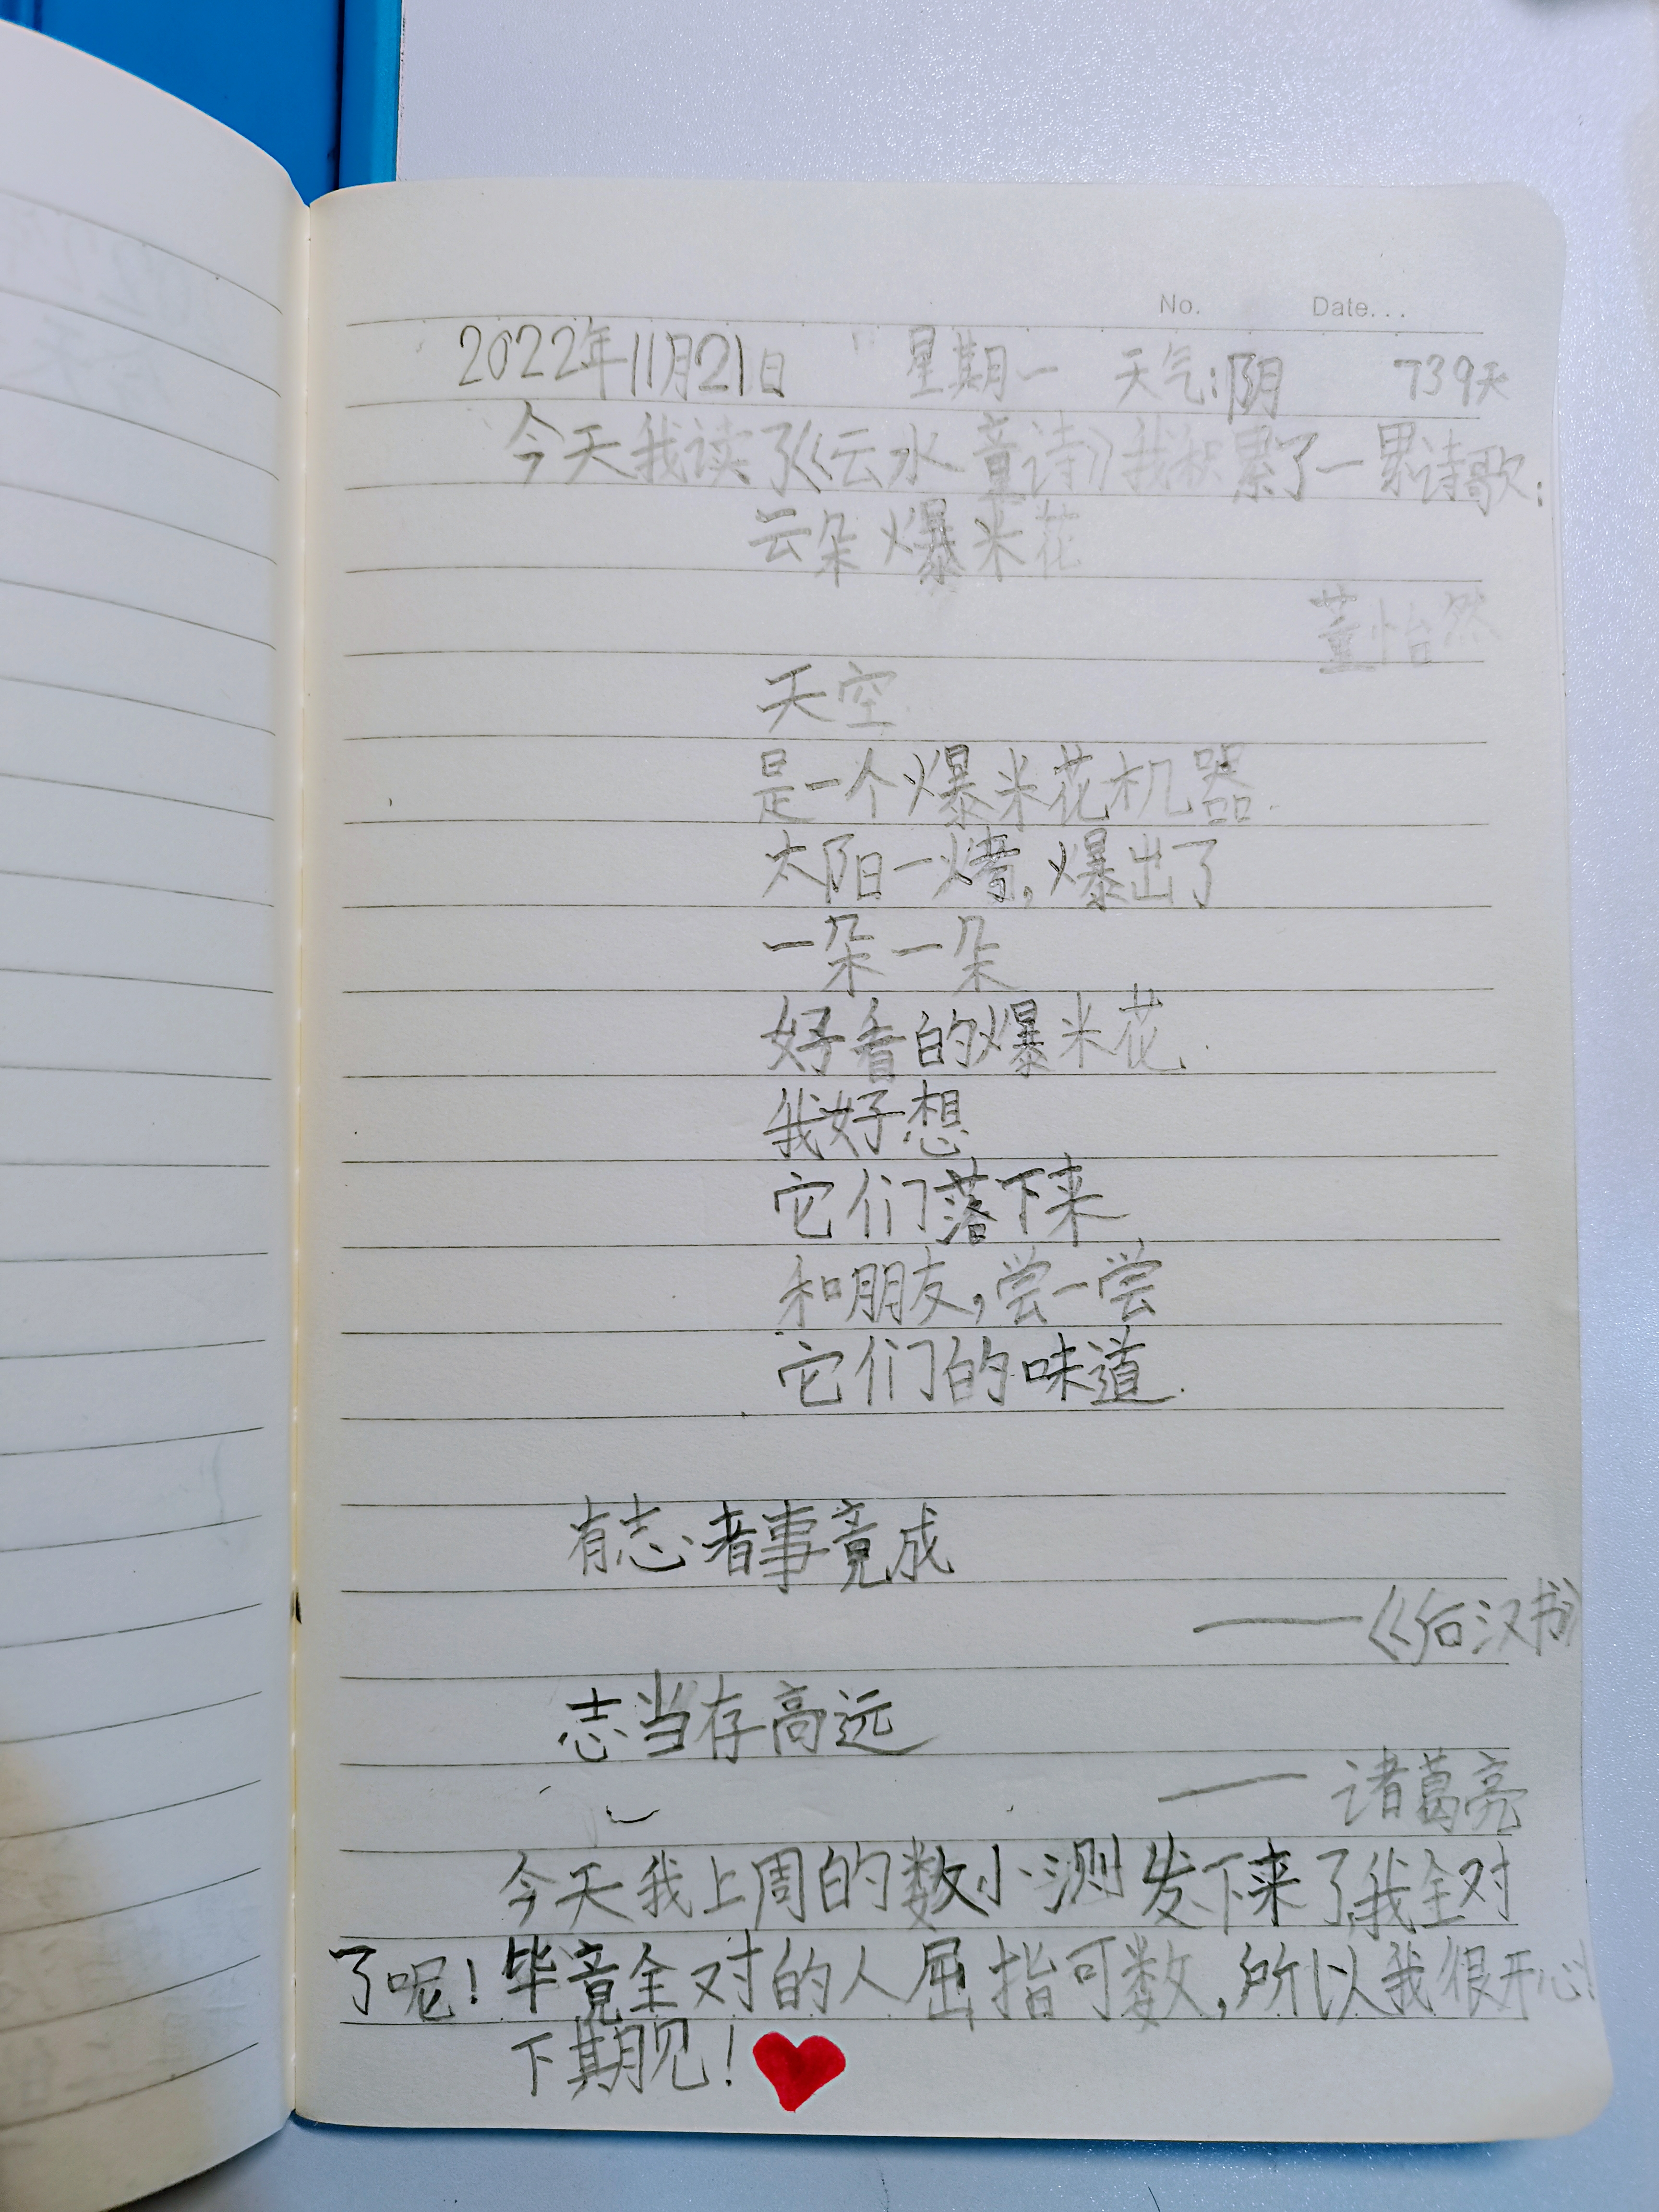 No. Date...
2022年11月21日 星期一 天气:阴 739天
今天我读了《云水童诗》我积累了一累诗歌:
云朵爆米花
董怡然
天空
是一个爆米花机器.
太阳一烤,爆出了
一朵一朵
好香的爆米花.
我好想
它们落下来
和朋友,尝一尝
它们的味道.
有志者事竟成
——《后汉书》
志当存高远
——诸葛亮
今天我上周的数小测发下来了,我全对
了呢!毕竟全对的人屈指可数,所以我很开心!
下期见!